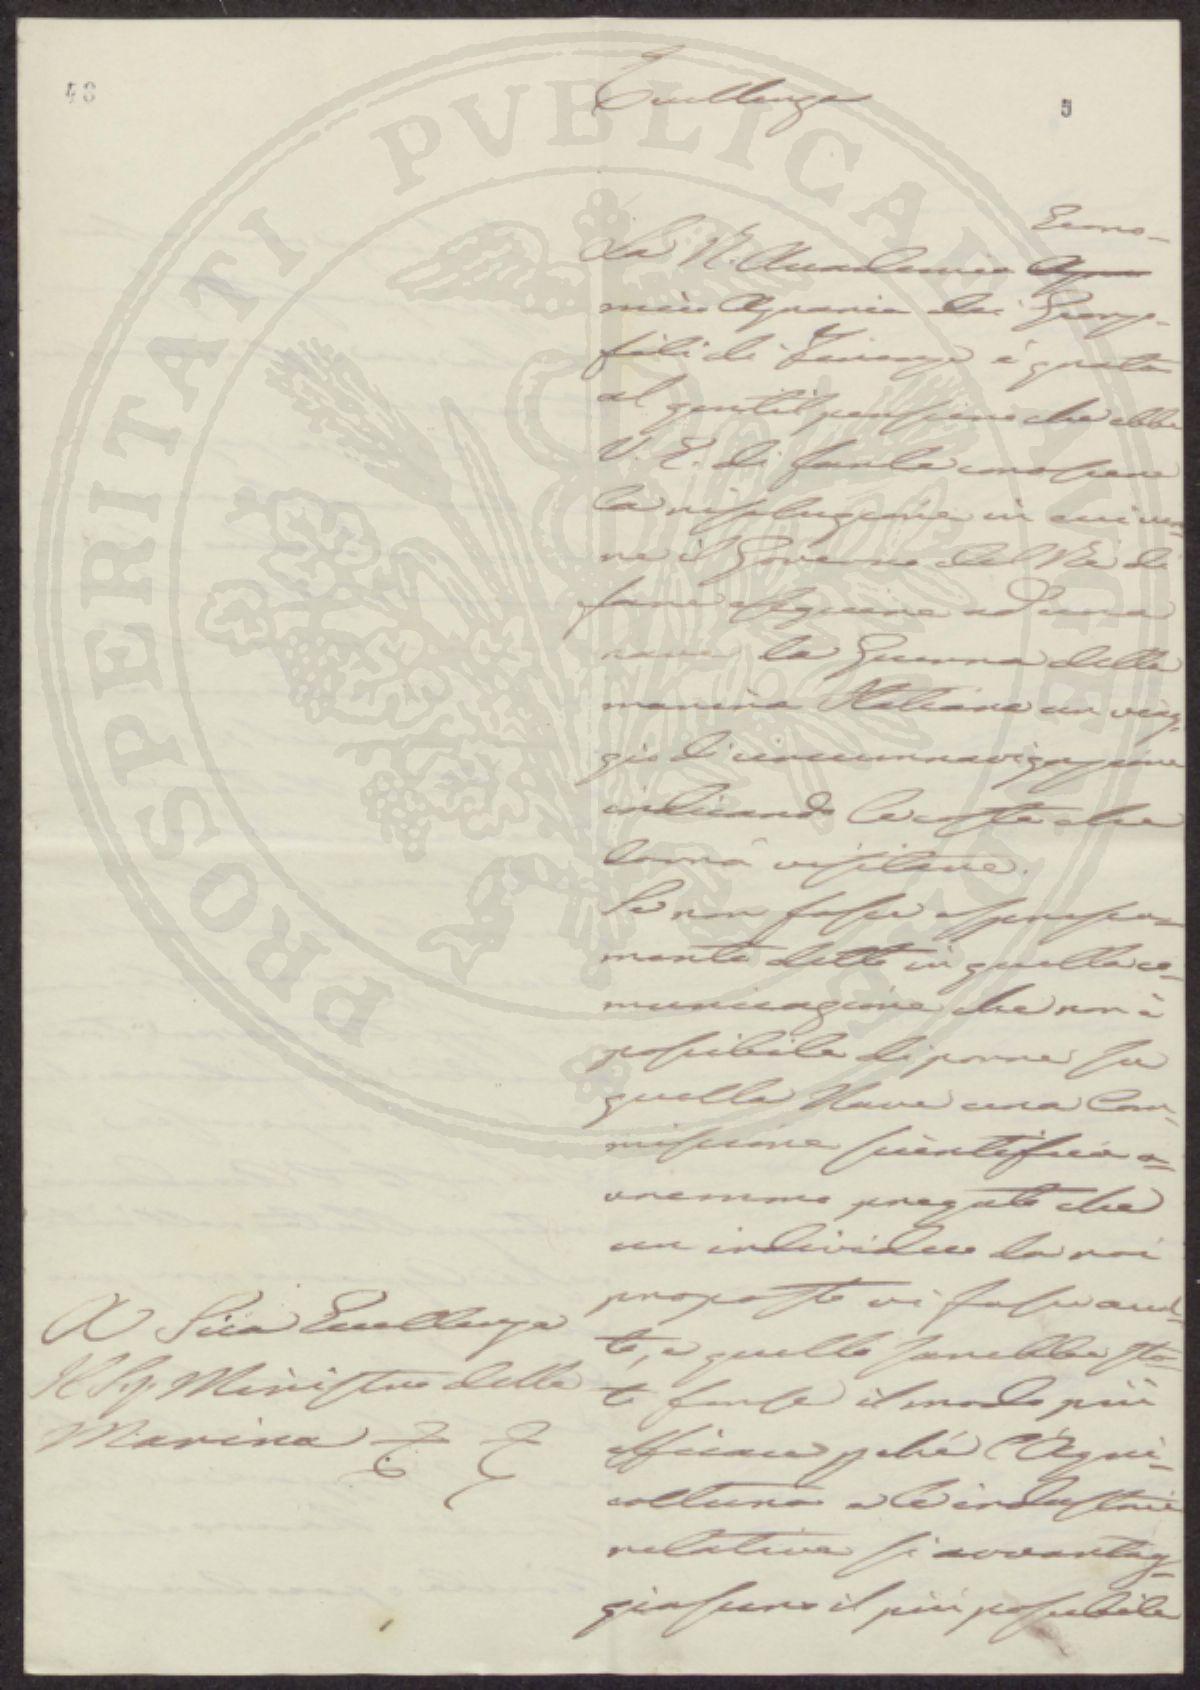 48
5
Eccellenza
Econo-
La R. Accademia Agra
mico Agraria dei Georgo-
fili di Firenze è grata
al gentil pensiero che ebbe
V. E. di farle conoscere
la risoluzione in cui ven-
ne il Governo del Re di
fare eseguire ad una
nave da Guerra della
marina Italiana un viag-
gio di circumnavigazione
indicando le coste che
dovrà visitare.
Se non fosse espressa-
mente detto in quella co-
municazione che non è
possibile di porre su
quella Nave una Com-
missione scientifica a-
vremmo pregato che
un individuo da noi
proposto vi fosse accol-
to, e quello sarebbe sta-
to forse il modo più
efficace pché l'Agri-
coltura e le industrie
relative si avvantag-
giassero il più possibile
A Sua Eccellenza
Il Sig. Ministro della
Marina
PROSPERITATI PVBLICAE AVGENDAE